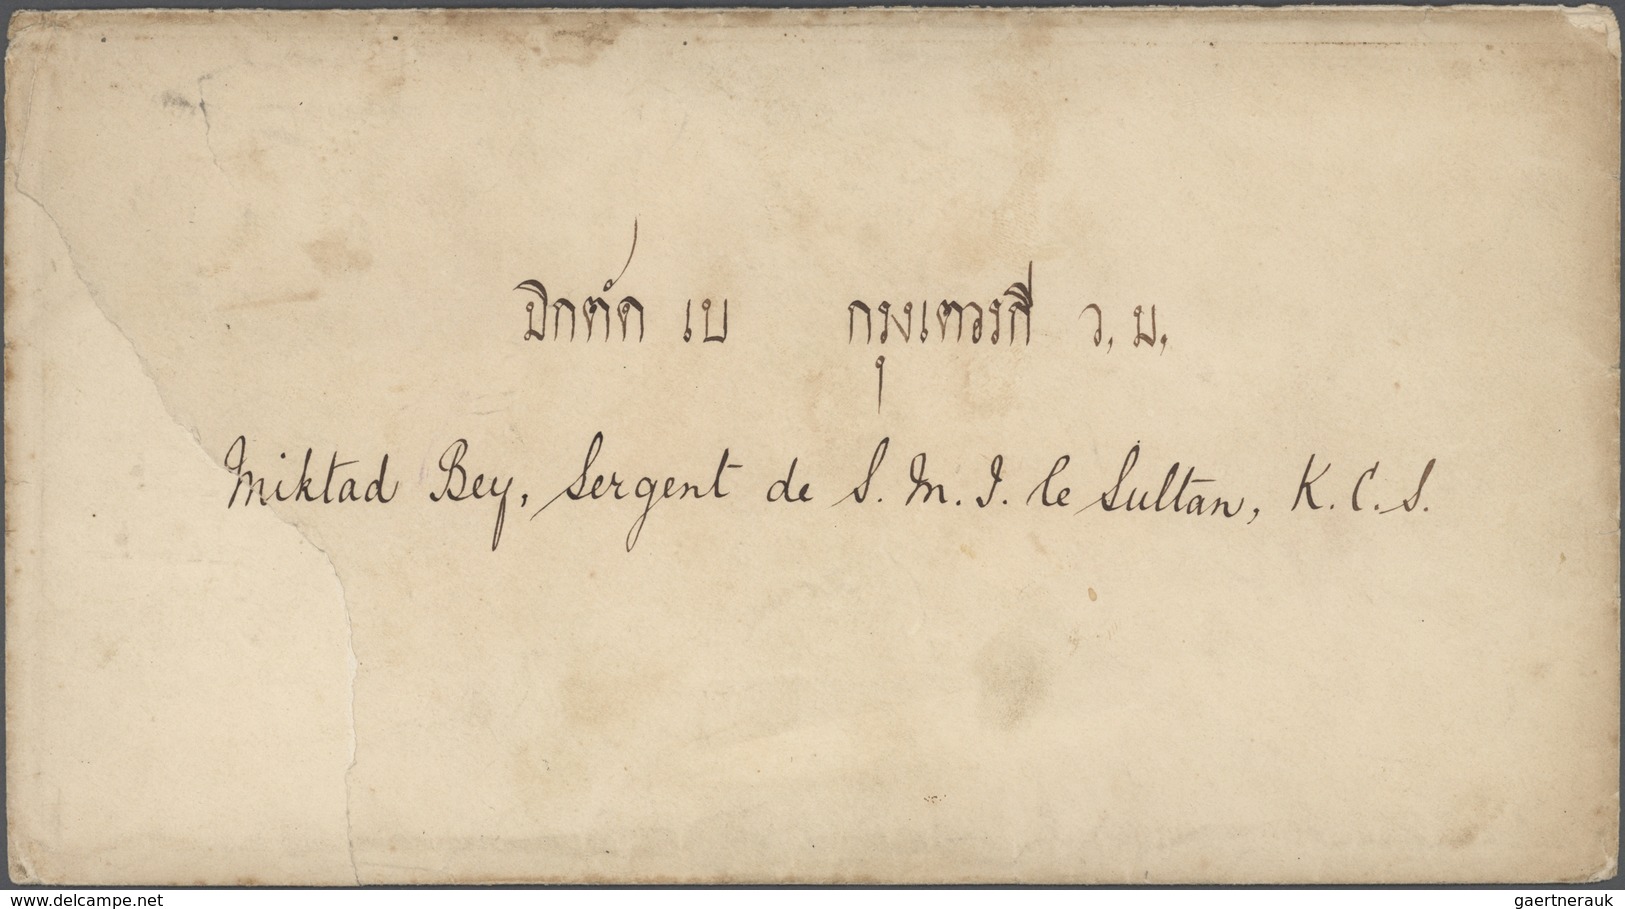 มิกตัด เบ กรุงเตวรกี ว, ม,
Miktad Bey, Sergent de S. M. I. le Sultan, K. C. S.
www.delcampe.net
gaertnerauk